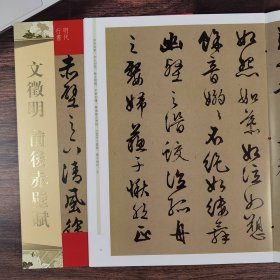 明代
行書
文徵明 前後赤壁賦
赤壁之下清風徐
如怨如慕如泣如愬
餘音嫋嫋不絕如縷舞
幽壑之潛蛟泣孤舟
之嫠婦蘇子愀然正